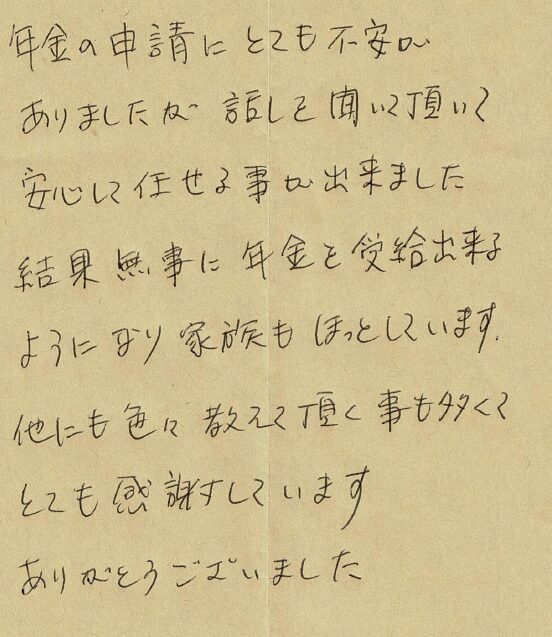 年金の申請にとても不安が
ありましたが 話しを聞いて頂いて
安心して任せる事が出来ました
結果無事に年金を受給出来る
ようになり家族もほっとしています.
他にも色々教えて頂く事も多くて
とても感謝しています
ありがとうございました